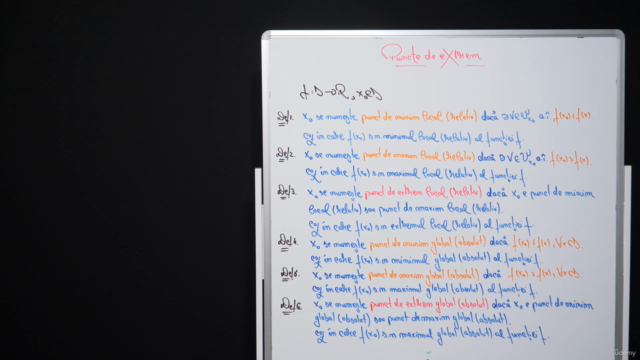 Puncte de extrem
f:D→R, x₀∈D
Def1. x₀ se numește punct de minim local (relativ) dacă ∃V∈𝒱x₀ a.î. f(x₀)≤f(x).
în care f(x₀) s.n minimul local (relativ) al funcției f
Def2. x₀ se numește punct de maxim local (relativ) dacă ∃V∈𝒱x₀ a.î. f(x₀)≥f(x).
în care f(x₀) s.n maximul local (relativ) al funcției f
Def3. x₀ se numește punct de extrem local (relativ) dacă x₀ e punct de minim
local (relativ) sau punct de maxim local (relativ)
în care f(x₀) s.n extremul local (relativ) al funcției f
Def4. x₀ se numește punct de minim global (absolut) dacă f(x₀)≤f(x), ∀x∈D
în care f(x₀) s.n minimul global (absolut) al funcției f.
Def5. x₀ se numește punct de maxim global (absolut) dacă f(x₀)≥f(x), ∀x∈D
în care f(x₀) s.n maximul global (absolut) al funcției f.
Def6. x₀ se numește punct de extrem global (absolut) dacă x₀ e punct de minim
global (absolut) sau punct de maxim global (absolut).
în care f(x₀) s.n maximul global (absolut) al funcției f.
Udemy